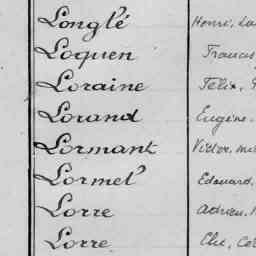 Longlé Henri,
Loquen Francis
Loraine Félix,
Lorand Eugène.
Lormant Victor,
Lormel Edouard.
Lorre Adrien,
Lorre